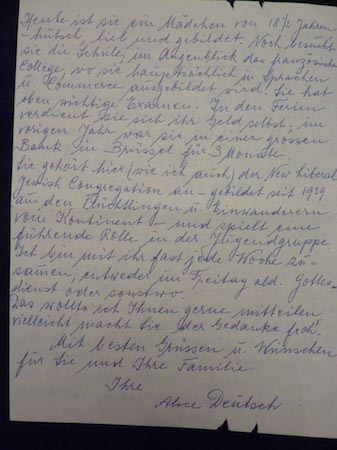 Heute ist sie ein Mädchen von 18½ Jahren
- hübsch, lieb und gebildet. Noch besucht
sie die Schule, im Augenblick das französische
College, wo sie hauptsächlich in Sprachen
u. Commerce ausgebildet wird. Sie hat
eben wichtige Examen. In den Ferien
verdient sie sich ihr Geld selbst; im
vorigen Jahr war sie in einer grossen
Bank in Brüssel für 3 Monate.
Sie gehört hier (wie ich auch) der New Liberal
Jewish Congregation an - gebildet seit 1939
aus den Flüchtlingen u. Einwanderern
vom Kontinent - und spielt eine
führende Rolle in der Jugendgruppe.
Ich bin mit ihr fast jede Woche zu-
sammen, entweder im Freitag abd. Gottes-
dienst oder sonstwo.
Das wollte ich Ihnen gerne mitteilen
vielleicht macht Sie der Gedanke froh.
Mit besten Grüssen u. Wünschen
für Sie und Ihre Familie
Ihre
Alice Deutsch